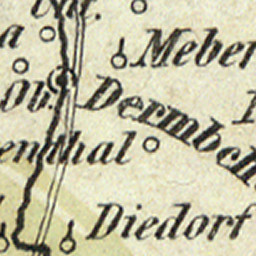 Meber
Ob.
Dermbch
enthal
Diedorf